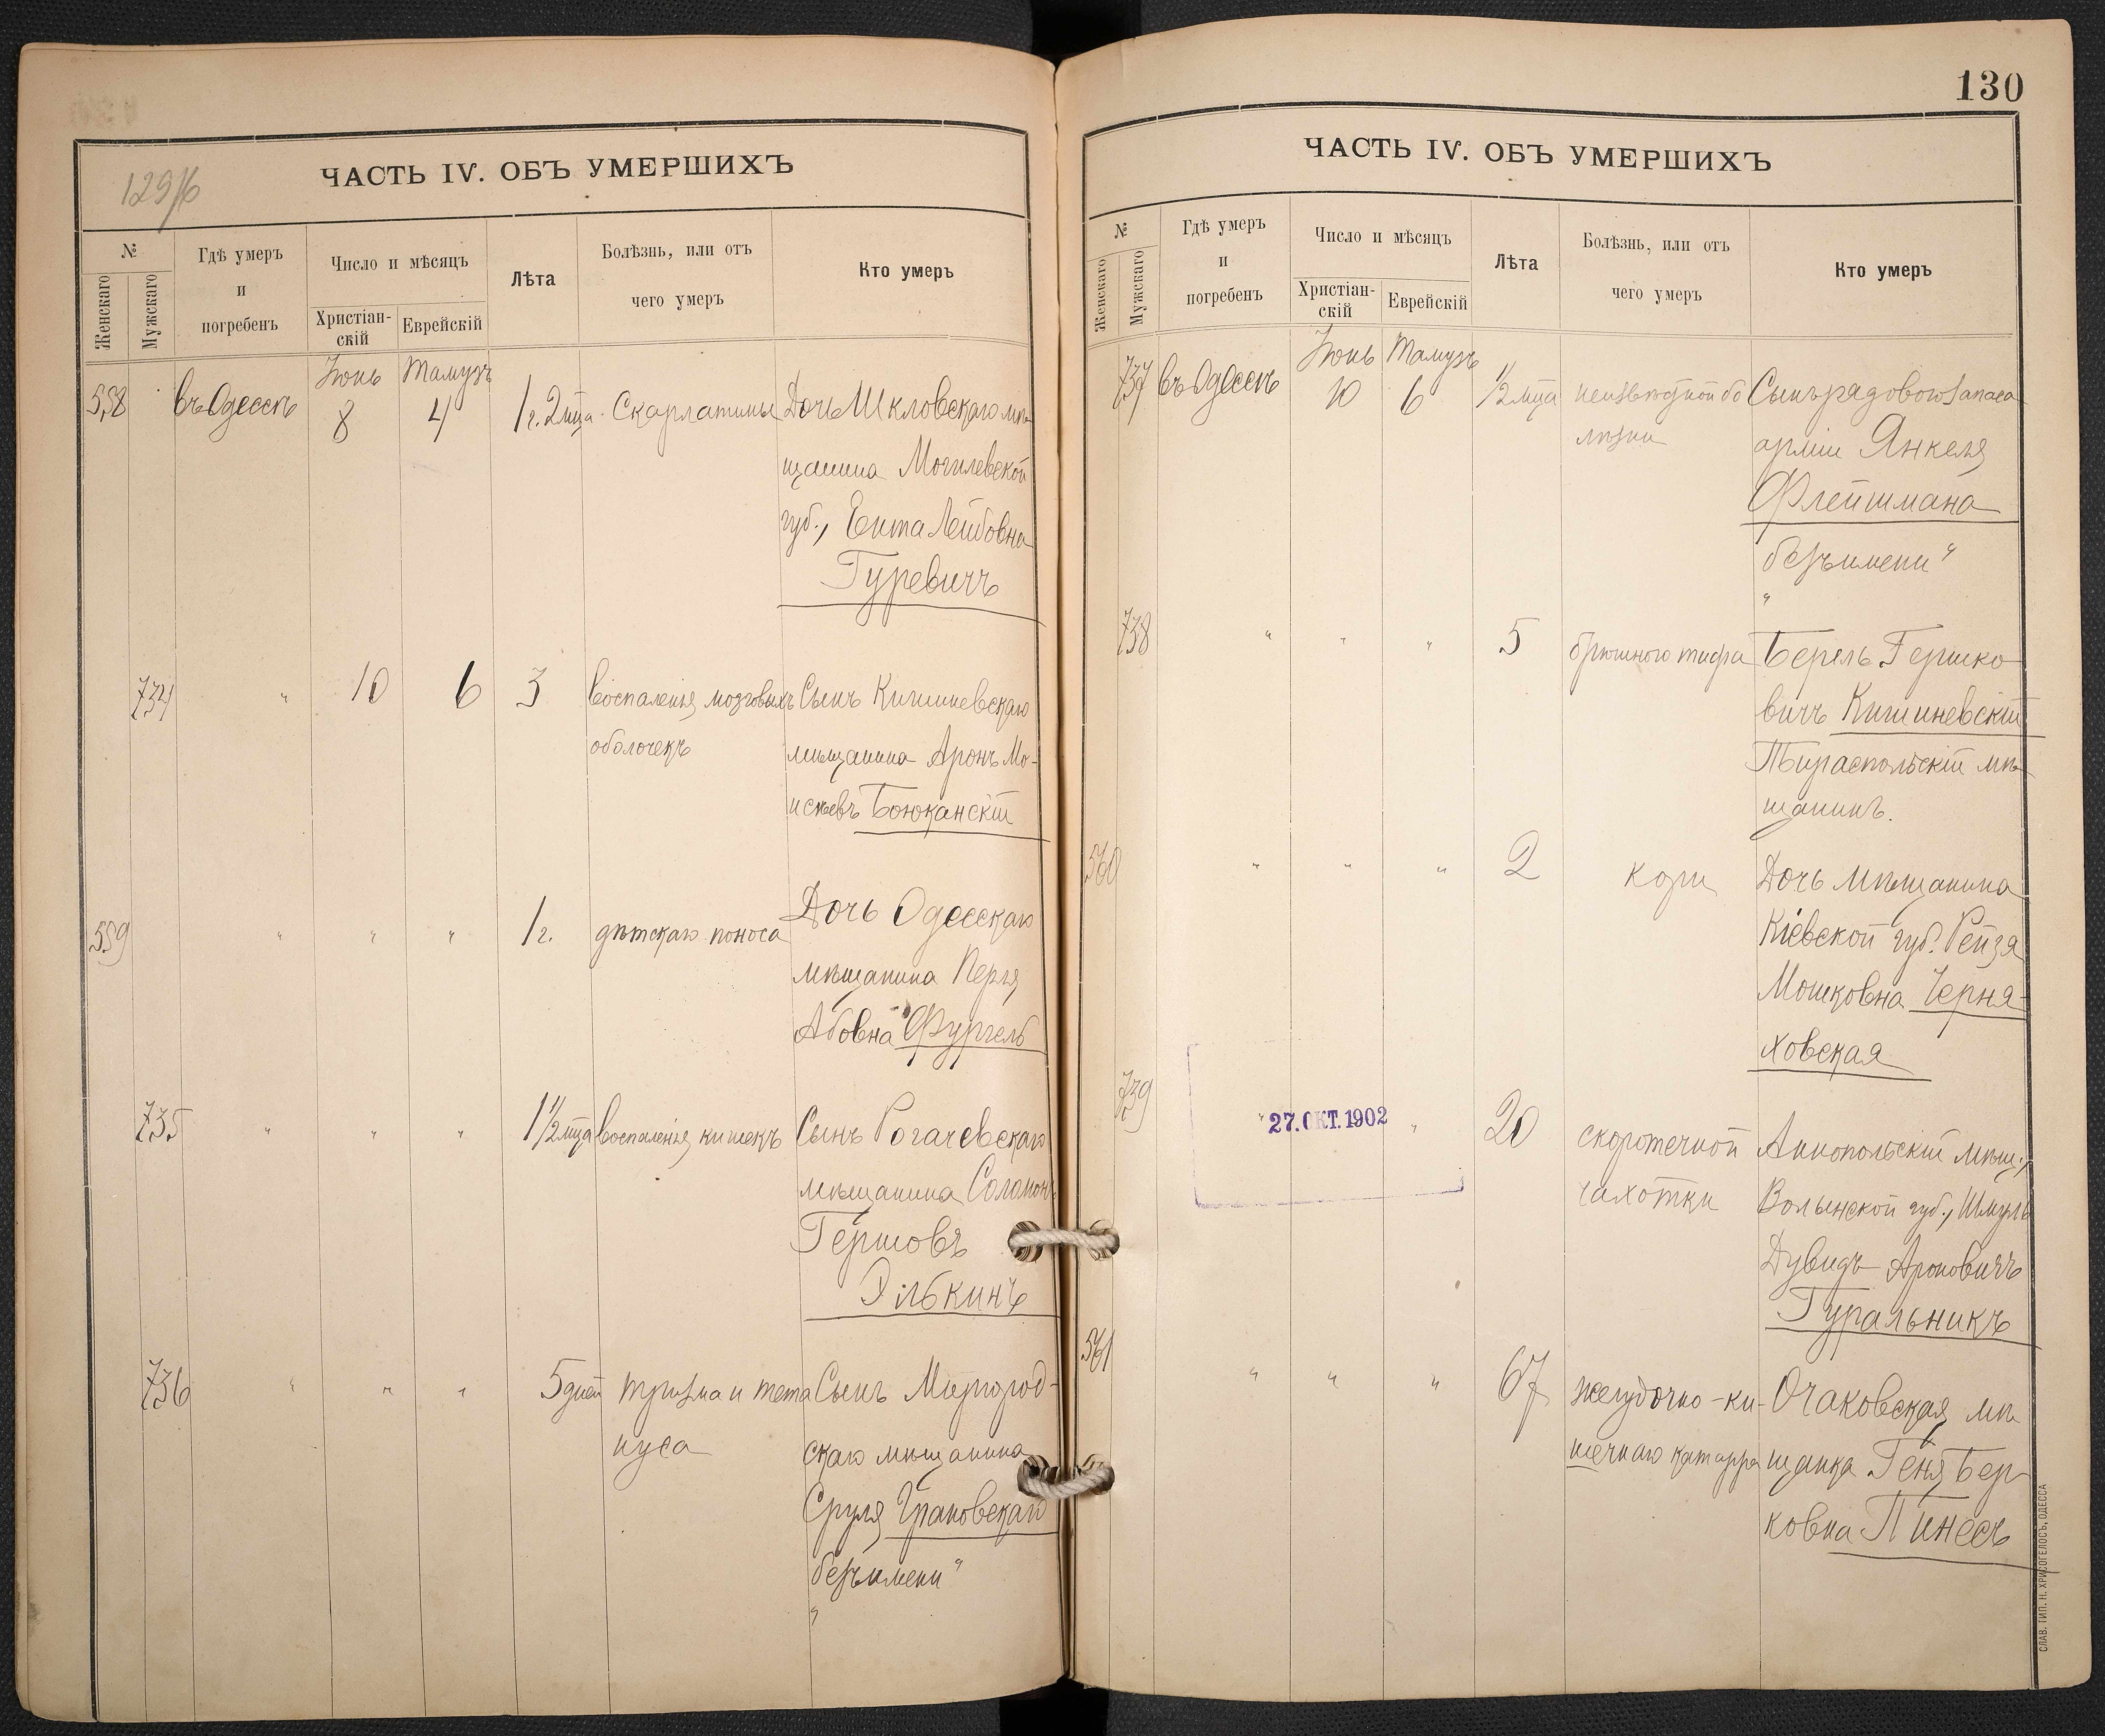 129/б
ЧАСТЬ IV. ОБЪ УМЕРШИХЪ
№
Женскаго
Мужскаго
Гдѣ умеръ
и
погребенъ
Число и мѣсяцъ
Христіан-
скій
Еврейскій
Лѣта
Болѣзнь, или отъ
чего умеръ
Кто умеръ
Іюнь Тамузъ
558 въ Одессѣ 8 4 1 г. 2 мца Скарлатины Дочь Шкловскаго мѣ-
щанина Могилевской
губ., Ента Лейбовна
Гуревичъ
734 " 10 6 3 воспаленія мозговыхъ Сынъ Кишиневскаго
оболочекъ мѣщанина Аронъ Мо-
исеевъ Боюканскій
559 " " " 1 г. дѣтскаго поноса Дочь Одесскаго
мѣщанина Перля
Абовна Фургель
735 " " " 1 1/2 мца воспаленія кишекъ Сынъ Рогачевскаго
мѣщанина Соломонъ
Гершовъ
Элькинъ
736 " " " 5 дней тризма и тета Сынъ Миргород-
нуса скаго мѣщанина
Сруля Грановскаго
"безъ имени"
130
ЧАСТЬ IV. ОБЪ УМЕРШИХЪ
№
Женскаго
Мужскаго
Гдѣ умеръ
и
погребенъ
Число и мѣсяцъ
Христіан-
скій
Еврейскій
Лѣта
Болѣзнь, или отъ
чего умеръ
Кто умеръ
Іюнь Тамузъ
737 въ Одессѣ 10 6 1/2 мца неизвѣстной бо Сынъ рядового запаса
лѣзни арміи Янкеля
Флейшмана
"безъ имени"
738 " " " 5 брюшного тифа Берель Гершко
вичъ Кишиневскій
Тираспольскій мѣ
щанинъ.
560 " " " 2 кори Дочь мѣщанина
Кіевской губ. Рейзя
Мошковна Черня-
ховская
739 " 27.ОКТ.1902 " 20 скоротечной Аннопольскій мѣщ.,
чахотки Волынской губ., Шмуль
Дувидъ Ароновичъ
Гуральникъ
561 " " " 67 желудочно-ки- Очаковская мѣ
шечнаго катарра щанка Геня Бер
ковна Пинесъ
СЛАВ. ТИП. Н. ХРИСОГЕЛОСЪ, ОДЕССА